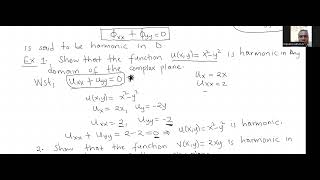 ϕxx + ϕyy = 0
is said to be harmonic in D.
Ex 1. Show that the function u(x,y) = x²-y² is harmonic in any
domain of the complex plane.
WST, Uxx + Uyy = 0 *
Ux = 2x
Uxx = 2
u(x,y) = x²-y²
Ux = 2x, Uy = -2y
Uxx = 2, Uyy = -2
Uxx + Uyy = 2-2 = 0 ⇒ u(x,y) = x²-y² is harmonic.
2. Show that the function V(x,y) = 2xy is harmonic in